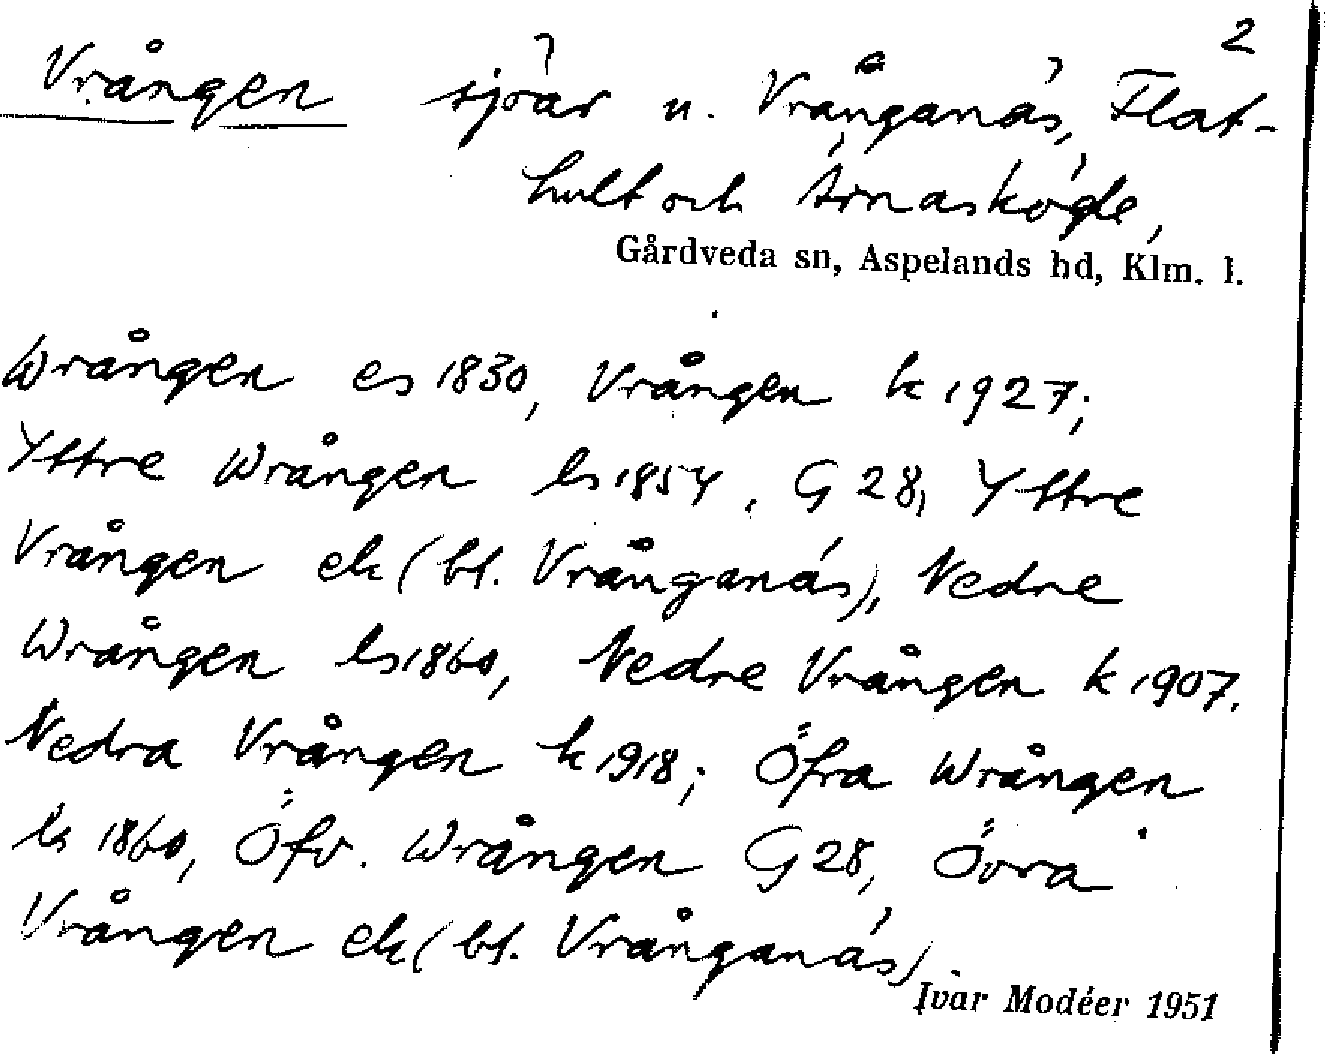 2
Vrången sjöar u. Vrånganäs, Flat-
hult och Årnaskögle,
Gårdveda sn, Aspelands hd, Klm. l.
Wrången es 1830, Vrången k 1927;
Yttre Wrången ls 1854, G 28, Yttre
Vrången ek (bl. Vrånganäs), Nedre
Wrången ls 1860, Nedre Vrången k 1907.
Nedra Vrången k 1918; Öfra Wrången
ls 1860, Öfv. Wrången G 28, Övra
Vrången ek (bl. Vrånganäs)
Ivar Modéer 1951